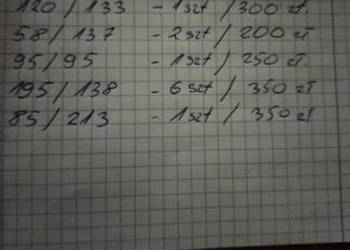 120/133 - 1szt/300 zł.
58/137 - 2szt/200 zł
95/95 - 1szt/250 zł.
195/138 - 6szt/350 zł
85/213 - 1szt/350 zł